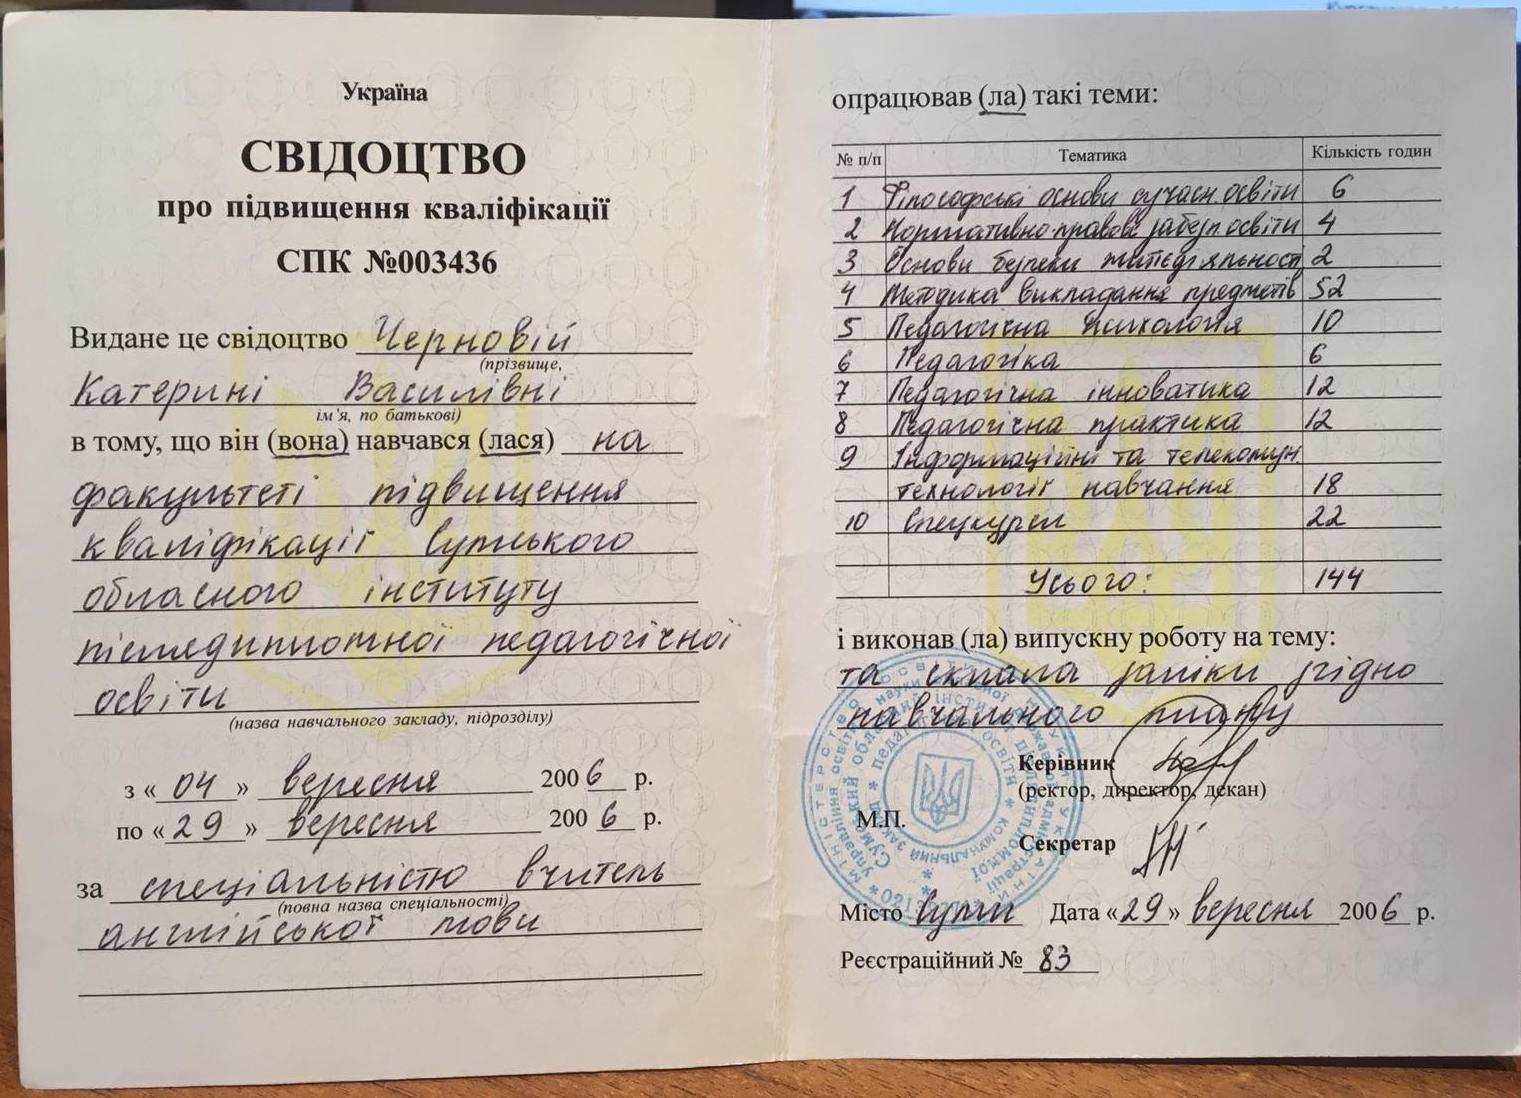 Україна
СВІДОЦТВО
про підвищення кваліфікації
СПК №003436
Видане це свідоцтво Черновій
(прізвище,
Катерині Василівні
ім'я, по батькові)
в тому, що він (вона) навчався (лася) на
факультеті підвищення
кваліфікації Сумського
обласного інституту
післядипломної педагогічної
освіти
(назва навчального закладу, підрозділу)
з «04» вересня 2006 р.
по «29» вересня 2006 р.
за спеціальністю вчитель
(повна назва спеціальності)
англійської мови
опрацював (ла) такі теми:
№ п/п Тематика Кількість годин
1 Філософські основи сучасн освіти 6
2 Нормативно-правове забезп освіти 4
3 Основи безпеки життєдіяльності 2
4 Методика викладання предметів 52
5 Педагогічна психологія 10
6 Педагогіка 6
7 Педагогічна інноватика 12
8 Педагогічна практика 12
9 Інформаційні та телекомун.
технології навчання 18
10 Спецкурси 22
Усього: 144
і виконав (ла) випускну роботу на тему:
та склала заліки згідно
навчального плану
Керівник
(ректор, директор, декан)
М.П.
Секретар
Місто Суми Дата «29» вересня 2006 р.
Реєстраційний № 83